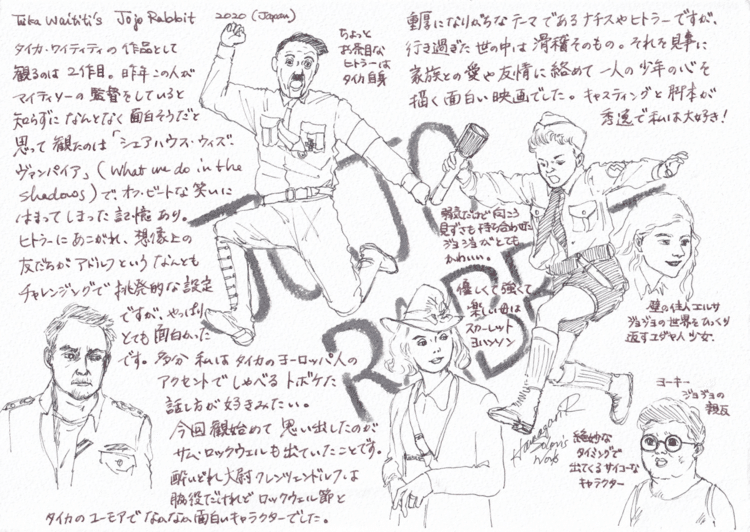 Taika Waititi's Jojo Rabbit 2020 (Japan)
タイカ・ワイティティの作品として
観るのは2作目。昨年この人が
マイティソーの監督をしていると
知らずになんとなく面白そうだと
思って観たのは「シェアハウス・ウィズ・
ヴァンパイア」(What we do in the
shadows)でオフ・ビートな笑いに
はまってしまった記憶あり。
ヒトラーにあこがれ、想像上の
友だちがアドルフというなんとも
チャレンジングで挑発的な設定
ですが、やっぱり
とても面白かった
です。多分私はタイカのヨーロッパ人の
アクセントでしゃべるトボケた
話し方が好きみたい。
今回観始めて思い出したのが
サム・ロックウェルも出ていたことです。
酔いどれ大尉クレンツェンドルフは
脇役だけれどロックウェル節と
タイカのユーモアでなかなか面白いキャラクターでした。
ちょっと
お茶目な
ヒトラーは
タイカ自身
重厚になりがちなテーマであるナチスやヒトラーですが、
行き過ぎた世の中は滑稽そのもの。それを見事に
家族との愛や友情に絡めて一人の少年の心を
描く面白い映画でした。キャスティングと脚本が
秀逸で私は大好き!
JOJO
RABBIT
弱気だけど向こう
見ずさも持ち合わせた
ジョジョがとても
かわいい。
優しくて強くて
楽しい母は
スカーレット
ヨハンソン
壁の佳人エルサ
ジョジョの世界をひっくり
返すユダヤ人少女。
ヨーキー
ジョジョの
親友
絶妙な
タイミングで
出てくるサイコーな
キャラクター